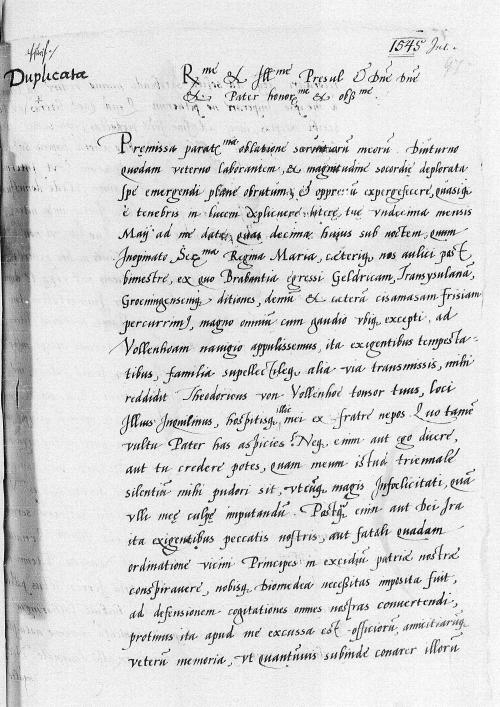 1545 Jul.
Duplicata
R.me et Ill.me Presul et Dne Dne
et Pater honor.me et obs.me
Premissa parate.ma oblatione servitiorū meorū. Diuturno
quodam veterno laborantem, et magnitudine socordie deplorata
spe emergendi plane obrutum, et oppressū expergefecere, quasiq
è tenebris in lucem explicuere litere tue vndecima mensis
Maij ad me date, quas decima huius sub noctem, quum
Inopinato Sec.ma Regina Maria, ceteriq nos aulici post
bimestre, ex quo Brabantia egressi Geldricam, Transysulanā,
Groeningensemq ditiones, demū et cæterā cisamasam frisiam
percurrim9, magno omniū cum gaudio vbiq excepti, ad
Vollenhoam nauigio appulissemus, ita exigentibus tempesta-
tibus, familia supellectileq alia via transmissis, mihi
reddidit Theodoricus von Vollenhoe tonsor tuus, loci
illius Inquilinus, hospitisq illic mei ex fratre nepos. Quo tamē
vultu Pater has aspicies? Neq enim aut ego dicere,
aut tu credere potes, quam meum istud triennale
silentiū mihi pudori sit, vtcūq magis Infœlicitati, quā
vlli meę culpę imputandū. Postq enim aut Dei Ira
ita exigentibus peccatis nostris, aut fatali quadam
ordinatione vicini Principes in excidiū patriæ nostræ
conspirauere, nobisq Diomedea necessitas imposita fuit,
ad defensionem cogitationes omnes nostras conuertendi,
protinus ita apud me excussa est officiorū, amicitiarūq
veterū memoria, vt quantumuis subinde conarer illorū